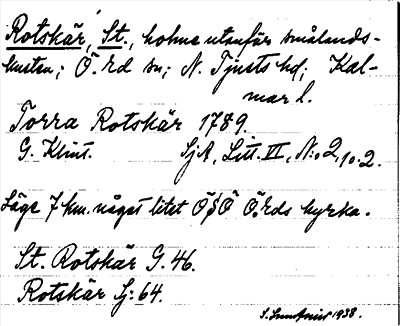 Rotskär, St., holme utanför smålands-
kusten; Ö. Ed sn; N. Tjusts hd; Kal-
mar l.
Torra Rotskär 1789.
G. Klint. SjA, Litt. VI, N:o 2, 10.2.
Läge 7 km. något litet ÖSÖ Ö. Eds kyrka.
St. Rotskär G. 46.
Rotskär Sj: 64.
1938.